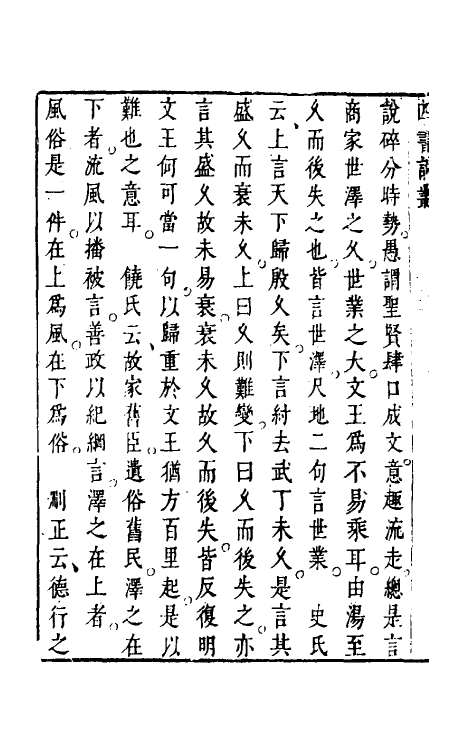 說碎分時勢愚謂聖賢肆口成文意趣流走總是言
商家世澤之久世業之大文王爲不易乘耳由湯至
久而後失之也皆言世澤尺地二句言世業　史氏
云上言天下歸殷久矣下言紂去武丁未久是言其
盛久而衰未久上曰久則難變下曰久而後失之亦
言其盛久故未易衰衰未久故久而後失皆反復明
文王何可當一句以歸重於文王猶方百里起是以
難也之意耳　饒氏云故家舊臣遺俗舊民澤之在
下者流風以播被言善政以紀綱言澤之在上者
風俗是一件在上爲風在下爲俗　剬正云德行之